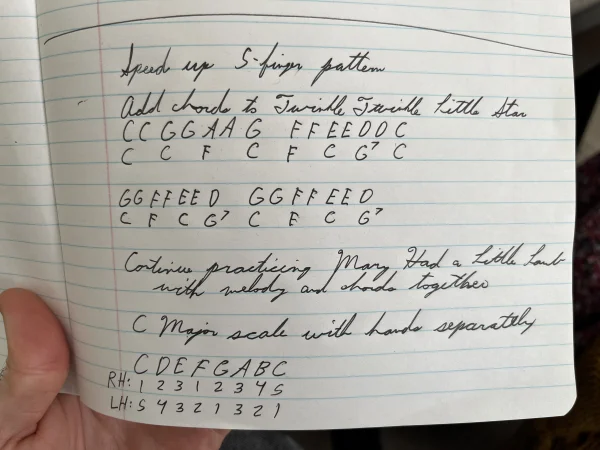 Speed up 5-finger pattern
Add chords to Twinkle Twinkle Little Star
C C G G A A G F F E E D D C
C C F C F C G⁷ C
G G F F E E D G G F F E E D
C F C G⁷ C F C G⁷
Continue practicing Mary Had a Little Lamb
with melody and chords together
C Major scale with hands separately
C D E F G A B C
RH: 1 2 3 1 2 3 4 5
LH: 5 4 3 2 1 3 2 1